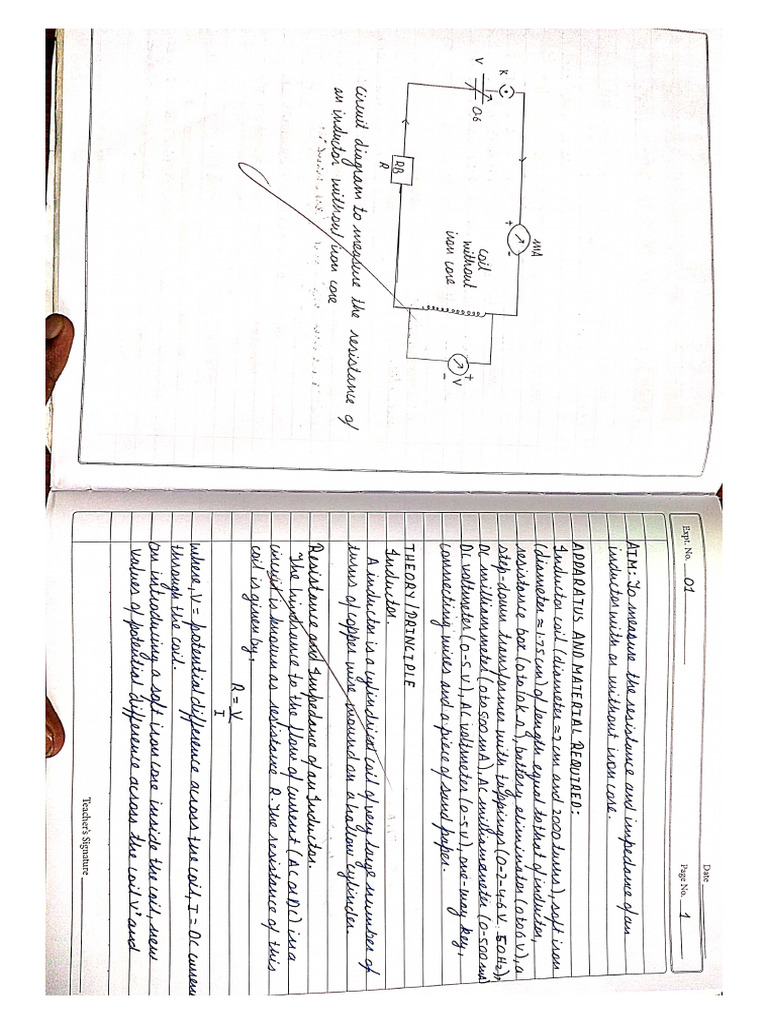 K
V
0.6
mA
+
-
coil
without
iron core
+
V
-
RB
R
Circuit diagram to measure the resistance of
an inductor without iron core
Date
Expt. No. 01
Page No. 1
AIM: To measure the resistance and impedance of an
inductor with or without iron core.
APPARATUS AND MATERIAL REQUIRED:
Inductor coil (diameter ≈ 2 cm and 2000 turns), soft iron
(diameter ≈ 1.75 cm) of length equal to that of inductor,
resistance box (0 to 10k Ω), battery eliminator (0 to 6 V), a
step-down transformer with tappings (0-2-4-6 V. 50 Hz),
DC milliammeter (0 to 500 mA), AC milliameter (0-500 mA)
DC voltmeter (0-5 V), AC voltmeter (0-5 V), one-way key,
connecting wires and a piece of sand paper.
THEORY/PRINCIPLE
Inductor.
A inductor is a cylindrical coil of very large number of
turns of copper wire wound on a hallow cylinder.
Resistance and Impedance of an Inductor.
The hindrance to the flow of current (AC or DC) in a
circuit is known as resistance R. The resistance of this
coil is given by,
R = V
I
where, V = potential difference across the coil, I = DC current
through the coil.
on introducing a soft iron core inside the coil, new
values of potential difference across the coil V' and
Teacher's Signature